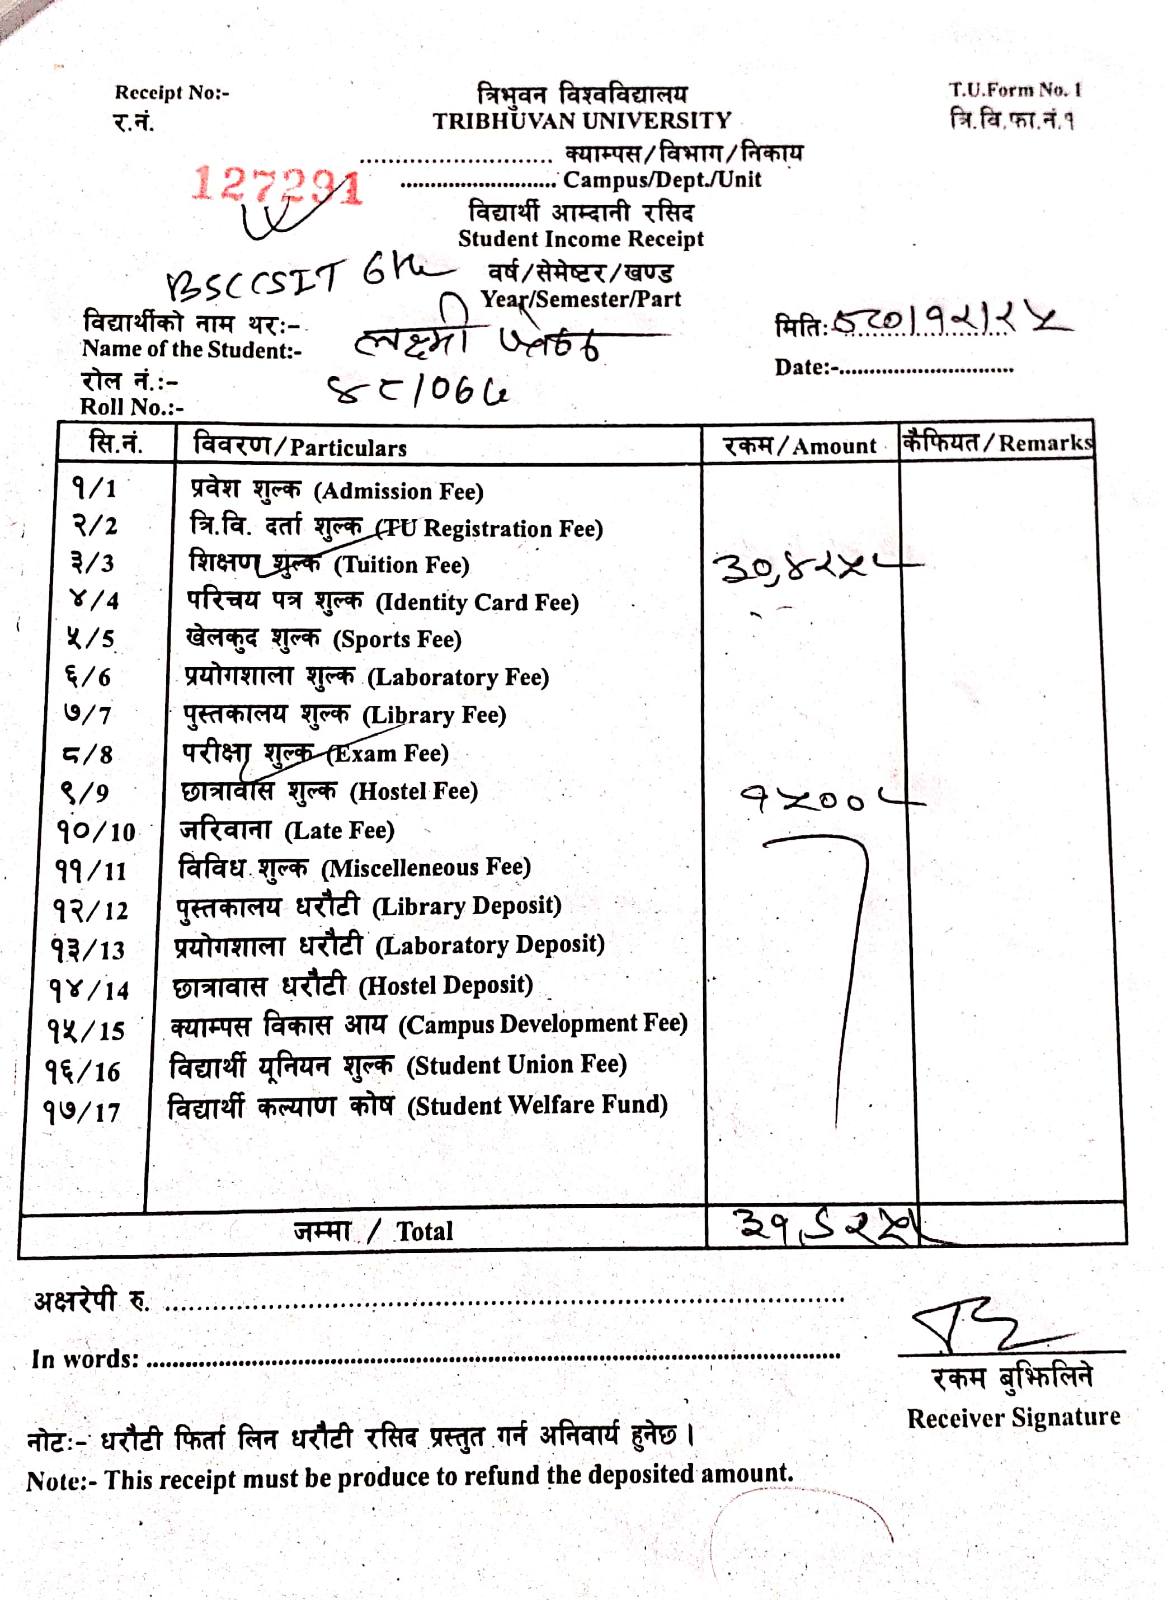 Receipt No:-
र.नं.
127291
त्रिभुवन विश्वविद्यालय
TRIBHUVAN UNIVERSITY
........................... क्याम्पस/विभाग/निकाय
........................... Campus/Dept./Unit
विद्यार्थी आम्दानी रसिद
Student Income Receipt
T.U.Form No. 1
त्रि.वि.फा.नं.१
BSCCSIT 6th वर्ष/सेमेष्टर/खण्ड
Year/Semester/Part
विद्यार्थीको नाम थर:- लक्ष्मी
Name of the Student:-
मिति:
Date:-..............................
रोल नं.:-
Roll No.:-
सि.नं. विवरण/Particulars रकम/Amount कैफियत/Remarks
१/1 प्रवेश शुल्क (Admission Fee)
२/2 त्रि.वि. दर्ता शुल्क (TU Registration Fee)
३/3 शिक्षण शुल्क (Tuition Fee) ३०,४२५
४/4 परिचय पत्र शुल्क (Identity Card Fee)
५/5 खेलकुद शुल्क (Sports Fee)
६/6 प्रयोगशाला शुल्क (Laboratory Fee)
७/7 पुस्तकालय शुल्क (Library Fee)
८/8 परीक्षा शुल्क (Exam Fee)
९/9 छात्रावास शुल्क (Hostel Fee) १५००
१०/10 जरिवाना (Late Fee)
११/11 विविध शुल्क (Miscelleneous Fee)
१२/12 पुस्तकालय धरौटी (Library Deposit)
१३/13 प्रयोगशाला धरौटी (Laboratory Deposit)
१४/14 छात्रावास धरौटी (Hostel Deposit)
१५/15 क्याम्पस विकास आय (Campus Development Fee)
१६/16 विद्यार्थी यूनियन शुल्क (Student Union Fee)
१७/17 विद्यार्थी कल्याण कोष (Student Welfare Fund)
जम्मा / Total ३१,९२५
अक्षरेपी रु. ..............................
In words: ..............................
रकम बुझिलिने
Receiver Signature
नोट:- धरौटी फिर्ता लिन धरौटी रसिद प्रस्तुत गर्न अनिवार्य हुनेछ।
Note:- This receipt must be produce to refund the deposited amount.